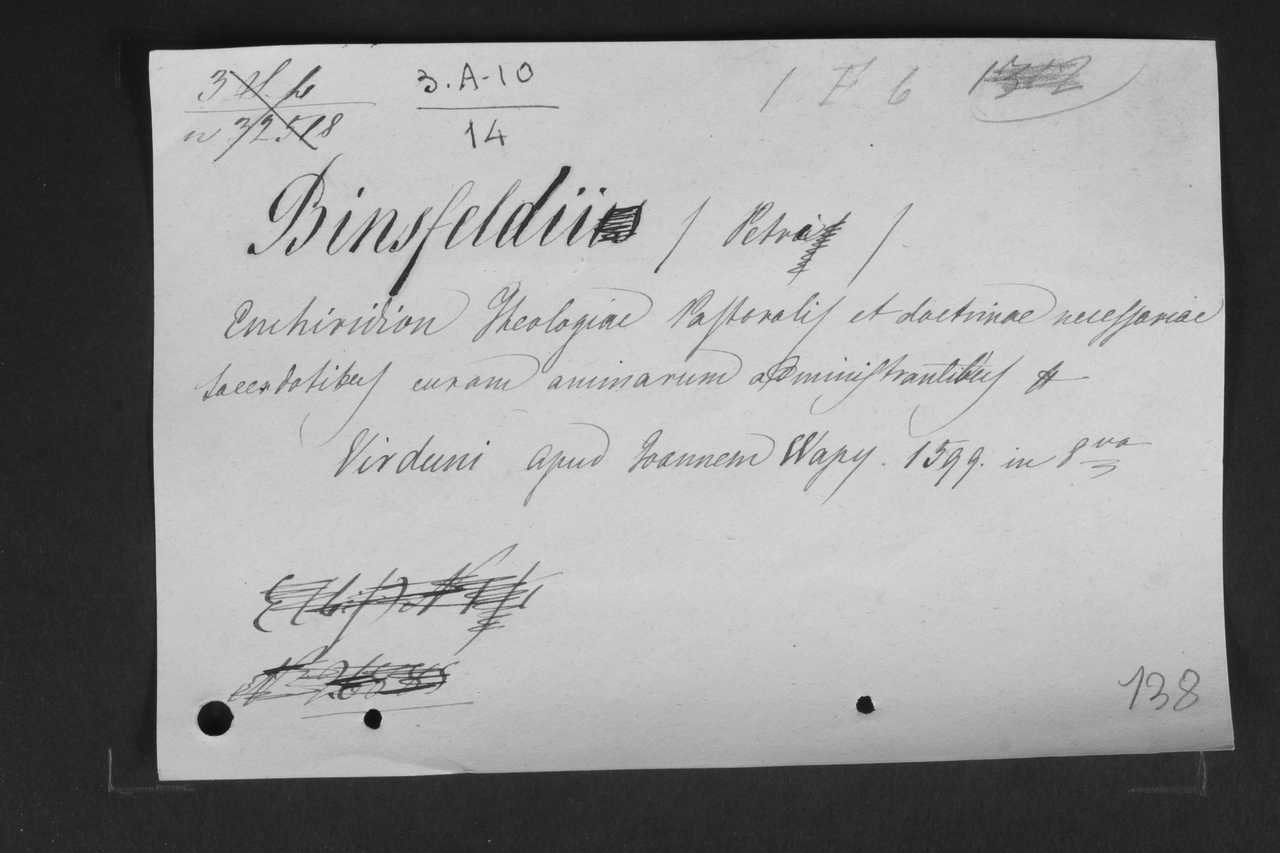 3. A-10
14
1 F 6
Binsfeldii / Petri /
Enchiridion Theologiae Pastoralis et doctrinae necessariae
sacerdotibus curam animarum administrantibus
Virduni apud Joannem Wapy. 1599. in 8vo
138